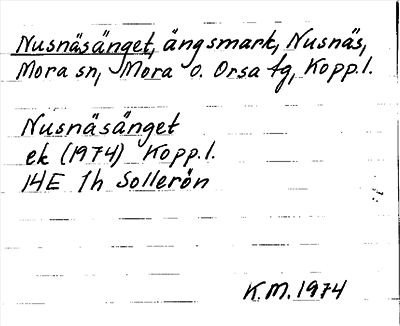 Nusnäsänget, ängsmark, Nusnäs,
Mora sn, Mora o. Orsa tg, Kopp.l.
Nusnäsänget
ek (1974) Kopp.l.
14E 1h Sollerön
K.M. 1974